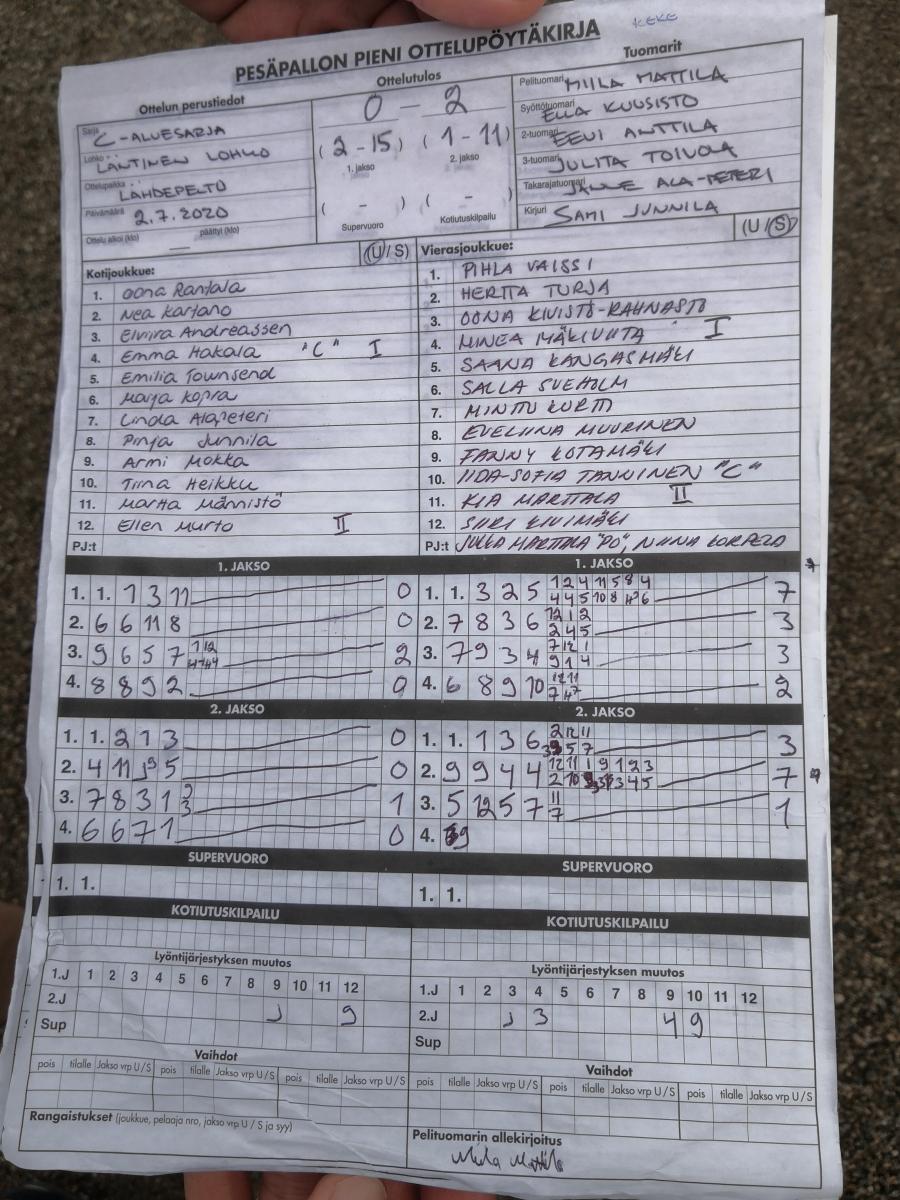 KEKE
PESÄPALLON PIENI OTTELUPÖYTÄKIRJA
Ottelun perustiedot
Sarja C-ALUESARJA
Lohko LÄNTINEN LOHKO
Ottelupaikka LÄHDEPELTO
Päivämäärä 2.7.2020
Ottelu alkoi (klo) — päättyi (klo)
Ottelutulos
0 - 2
(2-15) (1-11)
1. jakso 2. jakso
( - ) ( - )
Supervuoro Kotiutuskilpailu
Tuomarit
Pelituomari MIILA MATTILA
Syöttötuomari ELLA KUUSISTO
2-tuomari EEVI ANTTILA
3-tuomari JULITA TOIVOLA
Takarajatuomari JANNE ALA-PETERI
Kirjuri SAMI JUNNILA
Kotijoukkue: (U/S)
1. Oona Rantala
2. Nea Kartano
3. Elviira Andreassen
4. Emma Hakala "C" I
5. Emilia Townsend
6. Maija Kopra
7. Linda Alapeteri
8. Pinja Junnila
9. Armi Mokka
10. Tiina Heikku
11. Martta Männistö
12. Ellen Murto II
PJ:t
Vierasjoukkue: (U/S)
1. PIHLA VAISSI
2. HERTTA TURJA
3. OONA KIVISTÖ-RAHNASTO
4. MINEA MÄKIVIITA I
5. SAANA KANGASMÄKI
6. SALLA SVEHOLM
7. MINTTU KURTTI
8. EVELIINA MUURINEN
9. FANNY KOTAMÄKI
10. IIDA-SOFIA TANNINEN "C"
11. KIA MARTTALA II
12. SIIRI KIVIMÄKI
PJ:t JUKKA MARTTALA "PO", NIINA KORPELA
1. JAKSO
1. 1. 1 3 11 0
2. 6 6 11 8 0
3. 9 6 5 7 2
4. 8 8 9 2 0
1. JAKSO
1. 1. 3 2 5 1 2 4 11 5 8 4 7
4 4 5 10 8
2. 7 8 3 6 12 1 2 3
2 4 5
3. 7 9 3 4 7 12 1 3
9 1 4
4. 6 8 9 10 12 11 2
2. JAKSO
1. 1. 2 1 3 0
2. 4 11 J9 5 0
3. 7 8 3 1 2 1
3
4. 6 6 7 1 0
2. JAKSO
1. 1. 1 3 6 2 12 11 3
5 7
2. 9 9 4 4 12 11 1 9 1 2 3 7
2 10 3 4 5
3. 5 12 5 7 11 1
7
4. 9
SUPERVUORO
1. 1.
SUPERVUORO
1. 1.
KOTIUTUSKILPAILU
KOTIUTUSKILPAILU
Lyöntijärjestyksen muutos
1.J 1 2 3 4 5 6 7 8 9 10 11 12
2.J J 9
Sup
Lyöntijärjestyksen muutos
1.J 1 2 3 4 5 6 7 8 9 10 11 12
2.J J 3 4 9
Sup
Vaihdot
pois tilalle Jakso vrp U / S pois tilalle Jakso vrp U / S pois tilalle Jakso vrp U / S
Vaihdot
pois tilalle Jakso vrp U / S pois tilalle Jakso vrp U / S pois tilalle Jakso vrp U / S
Rangaistukset (joukkue, pelaaja nro, jakso vrp U / S ja syy)
Pelituomarin allekirjoitus
Miila Mattila